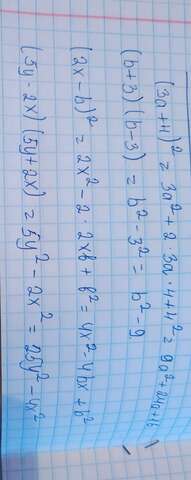 (3a+4)² = 3a²+2·3a·4+4² = 9a²+24a+16
(b+3)(b-3) = b²-3² = b²-9
(2x-b)² = 2x²-2·2xb+b² = 4x²-4bx+b²
(5y-2x)(5y+2x) = 5y²-2x² = 25y²-4x²